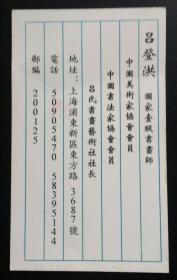 呂登洪 國家壹級書畫師
中國美術家協會會員
中國書法家協會會員
呂氏書畫藝術社社長
地址：上海浦東新區東方路3687號
電話 50905470 58395144
郵編 200125